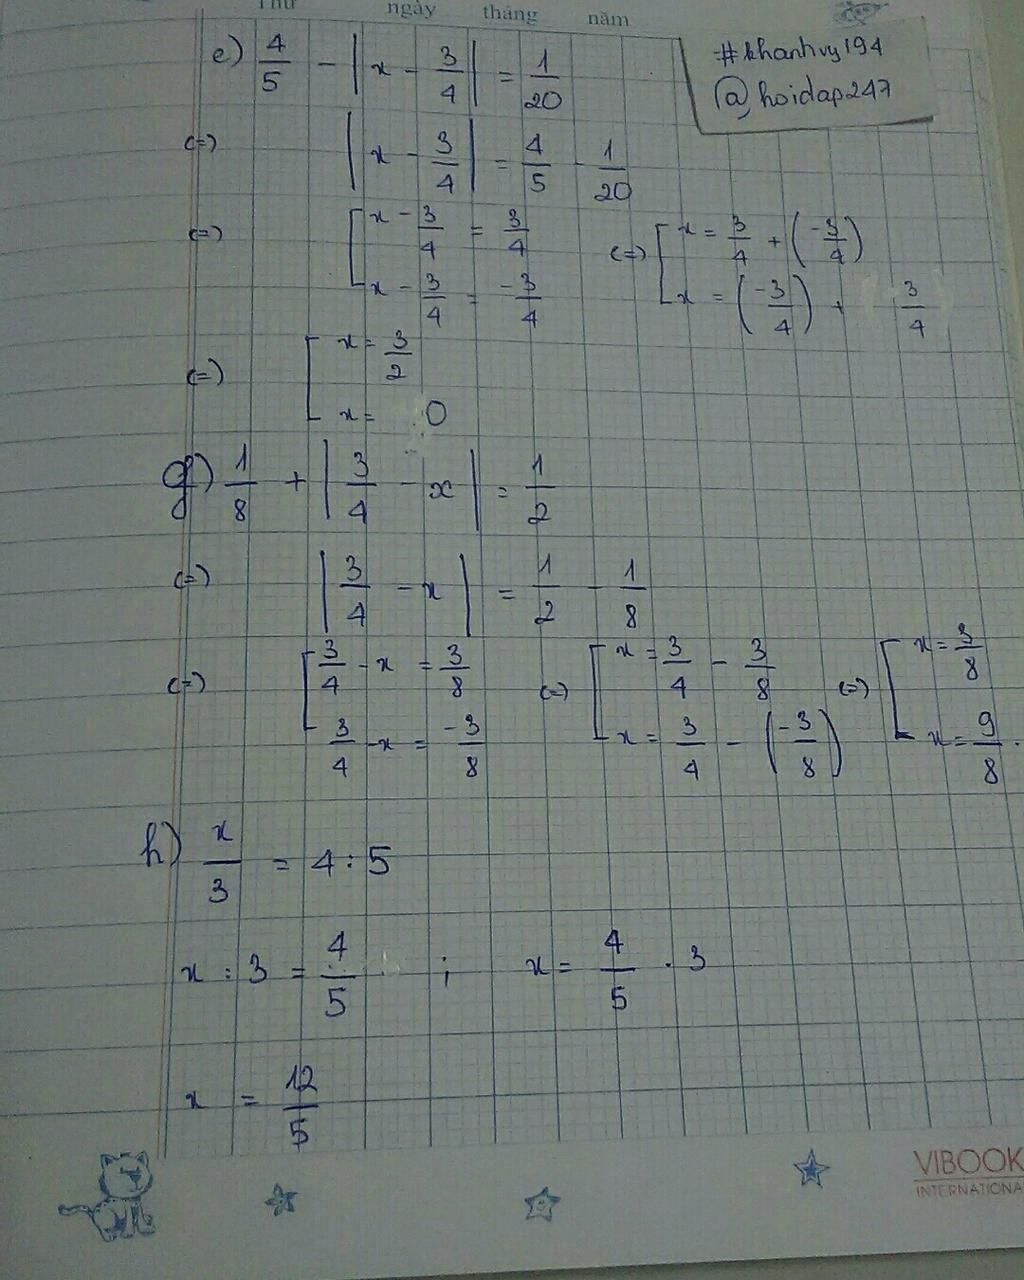 Thứ ngày tháng năm
#khanhvy194
@hoidap247
e) 4/5 - |x - 3/4| = 1/20
(=) |x - 3/4| = 4/5 - 1/20
(=) [ x - 3/4 = 3/4 (=) [ x = 3/4 + (-3/4)
x - 3/4 = -3/4 x = (-3/4) + 3/4
(=) [ x = 3/2
x = 0
g) 1/8 + |3/4 - x| = 1/2
(=) |3/4 - x| = 1/2 - 1/8
(=) [ 3/4 - x = 3/8 (=) [ x = 3/4 - 3/8 (=) [ x = 3/8
3/4 - x = -3/8 x = 3/4 - (-3/8) x = 9/8.
h) x/3 = 4:5
x : 3 = 4/5 ; x = 4/5 . 3
x = 12/5
VIBOOK
INTERNATIONA